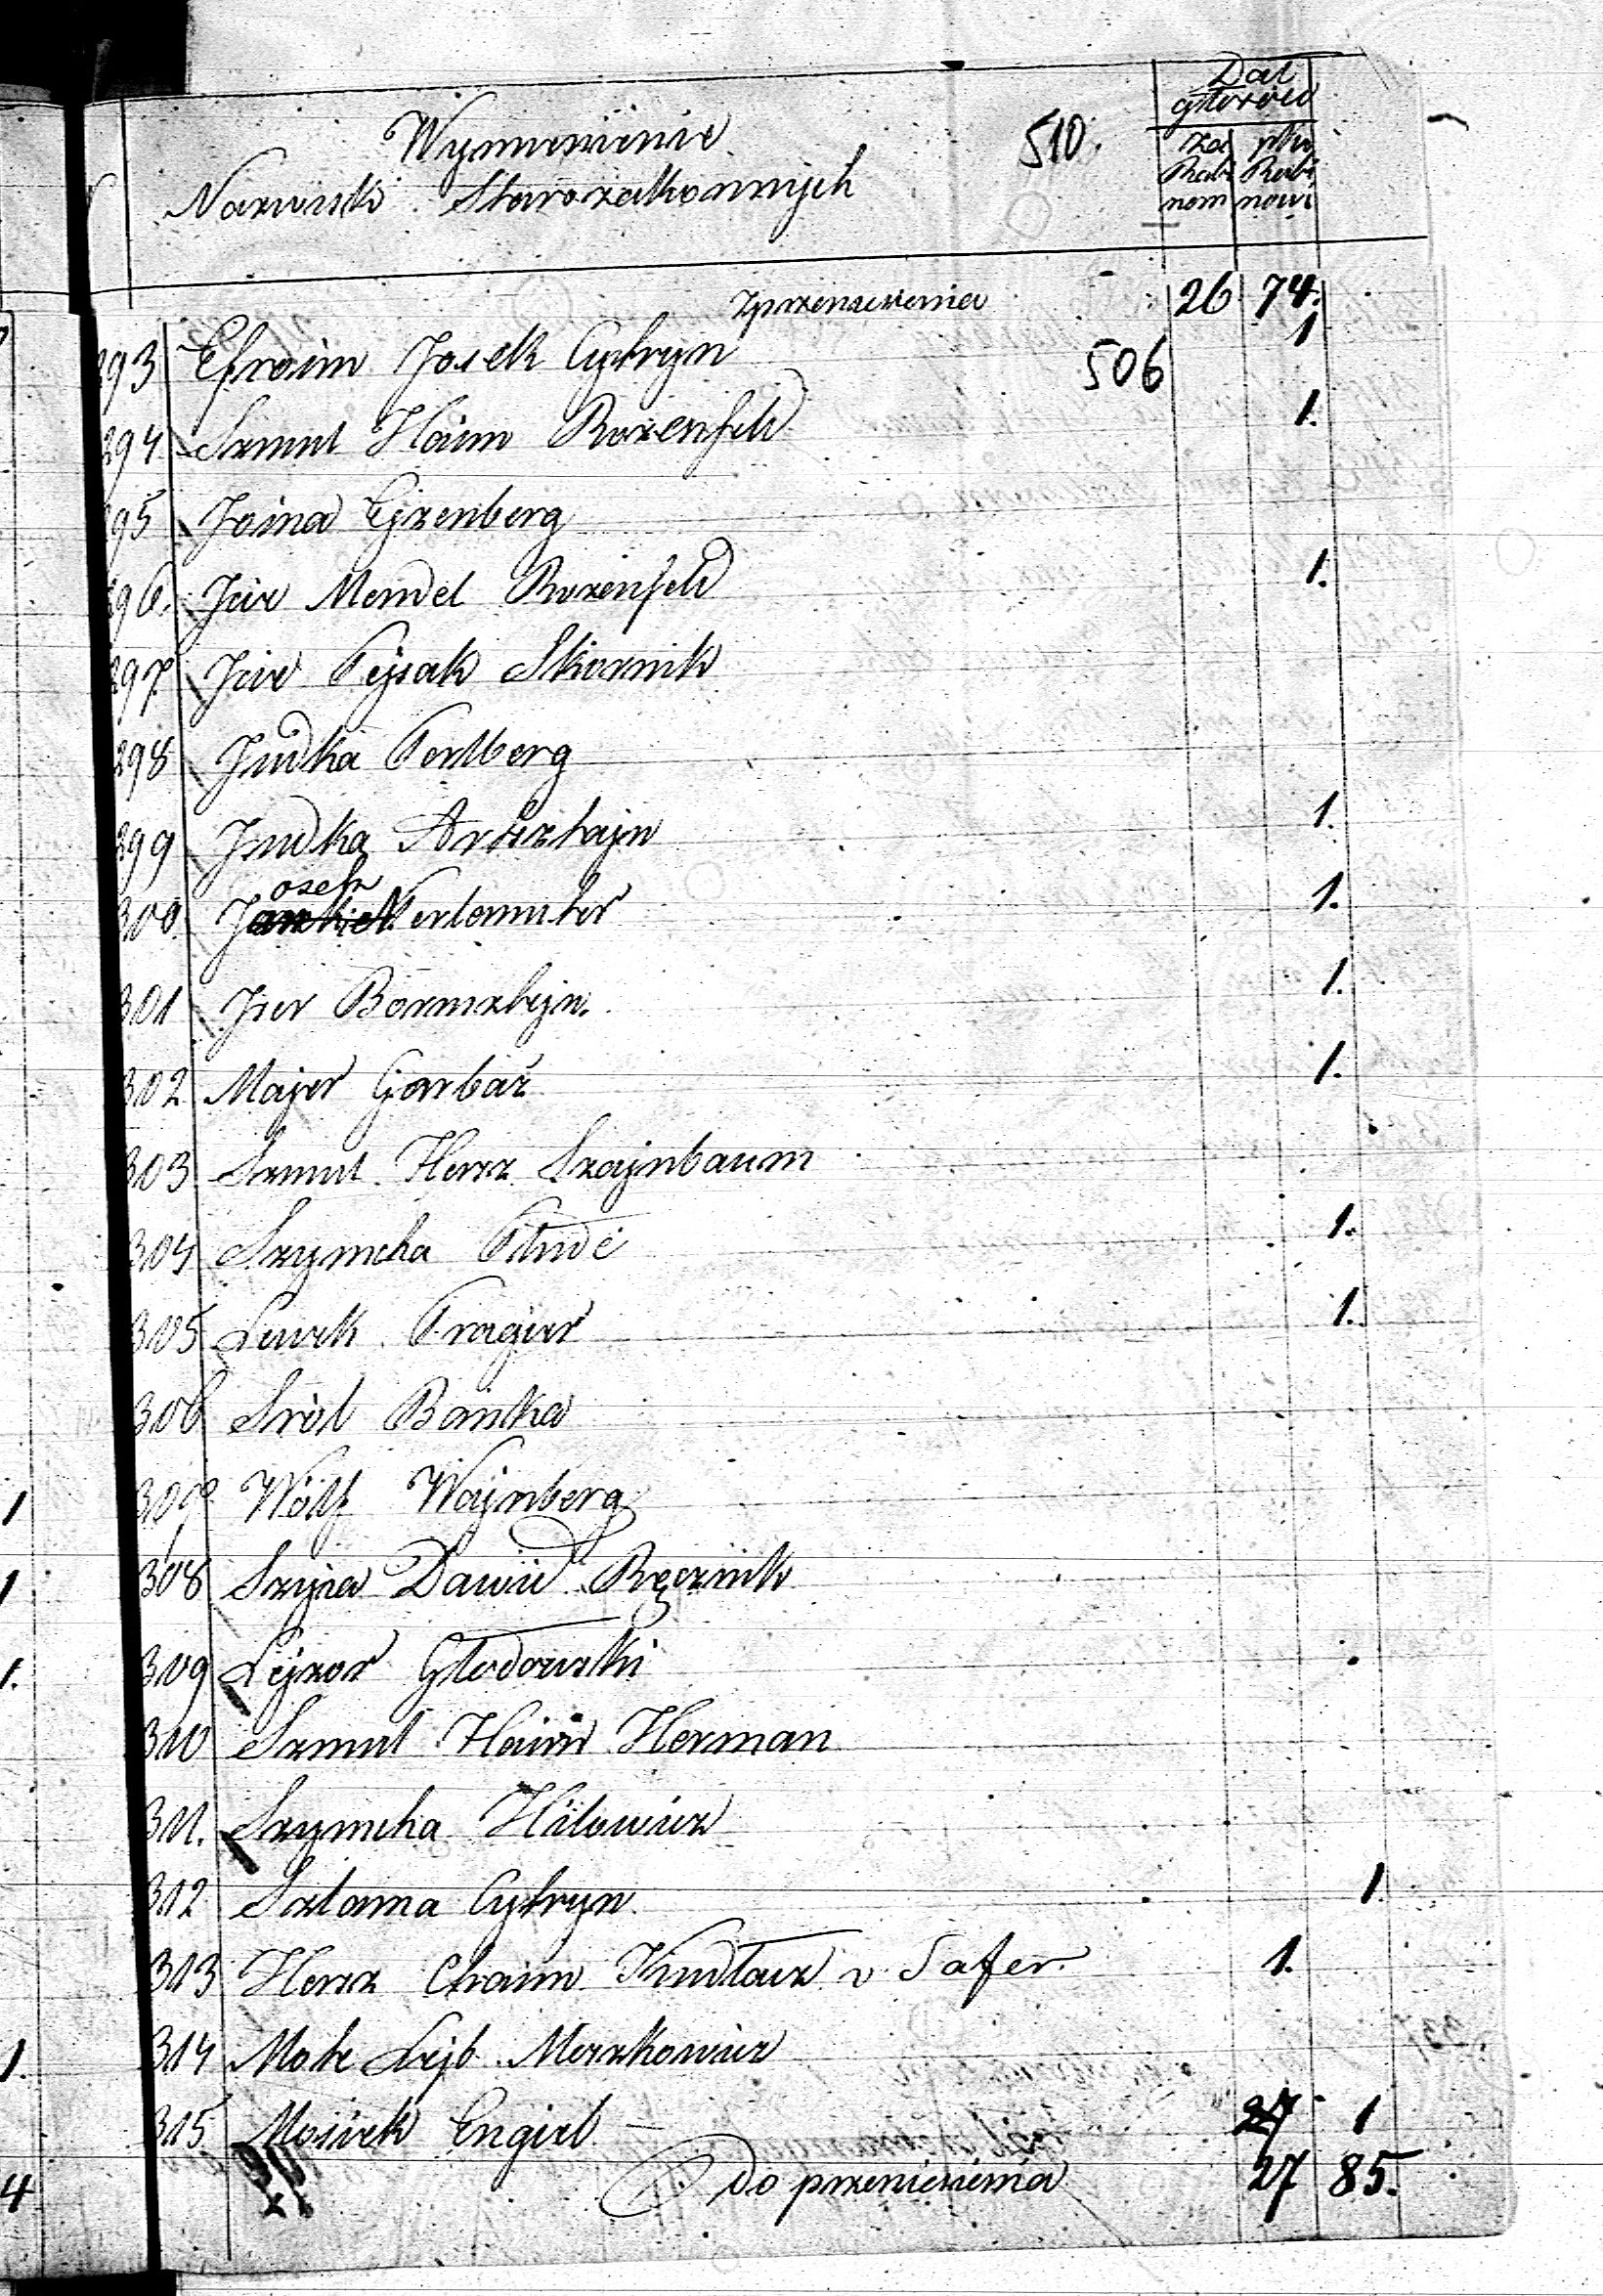 Wymienienie
Nazwisk Starozakonnych
510.
Dał
głosów
za Rabinem
ptko Rabinowi
zprzeniesienia 26 74.
293 Efroim Josek Cytryn 506 1
294 Szmul Haim Rozenfeld 1.
295 Joina Ejzenberg
296. Icie Mendel Rozenfeld 1.
297 Icie Pejsak Skornik
298 Judka Perlberg
299 Judka Arksztajn 1.
300. Josek Perlmuter 1.
301 Iser Bormsztejn. 1.
302 Majer Garbaz 1.
303 Szmul Hersz Szajnbaum
304 Szymcha 1.
305 Lewek Pragier 1.
306 Srol Bomka
307 Wolf Wajnberg
308 Szyia Dawid Ręcznik
309 Lejzor Głodowski
310 Szmul Haim Herman
311. Szymcha Hilowicz
312 Szlama Cytryn 1.
313 Hersz Chaim Kudłacz v Safer. 1.
314 Mote Lejb Moszkowicz
315 Mosiek Engiel 1
Do przeniesienia 27 85.